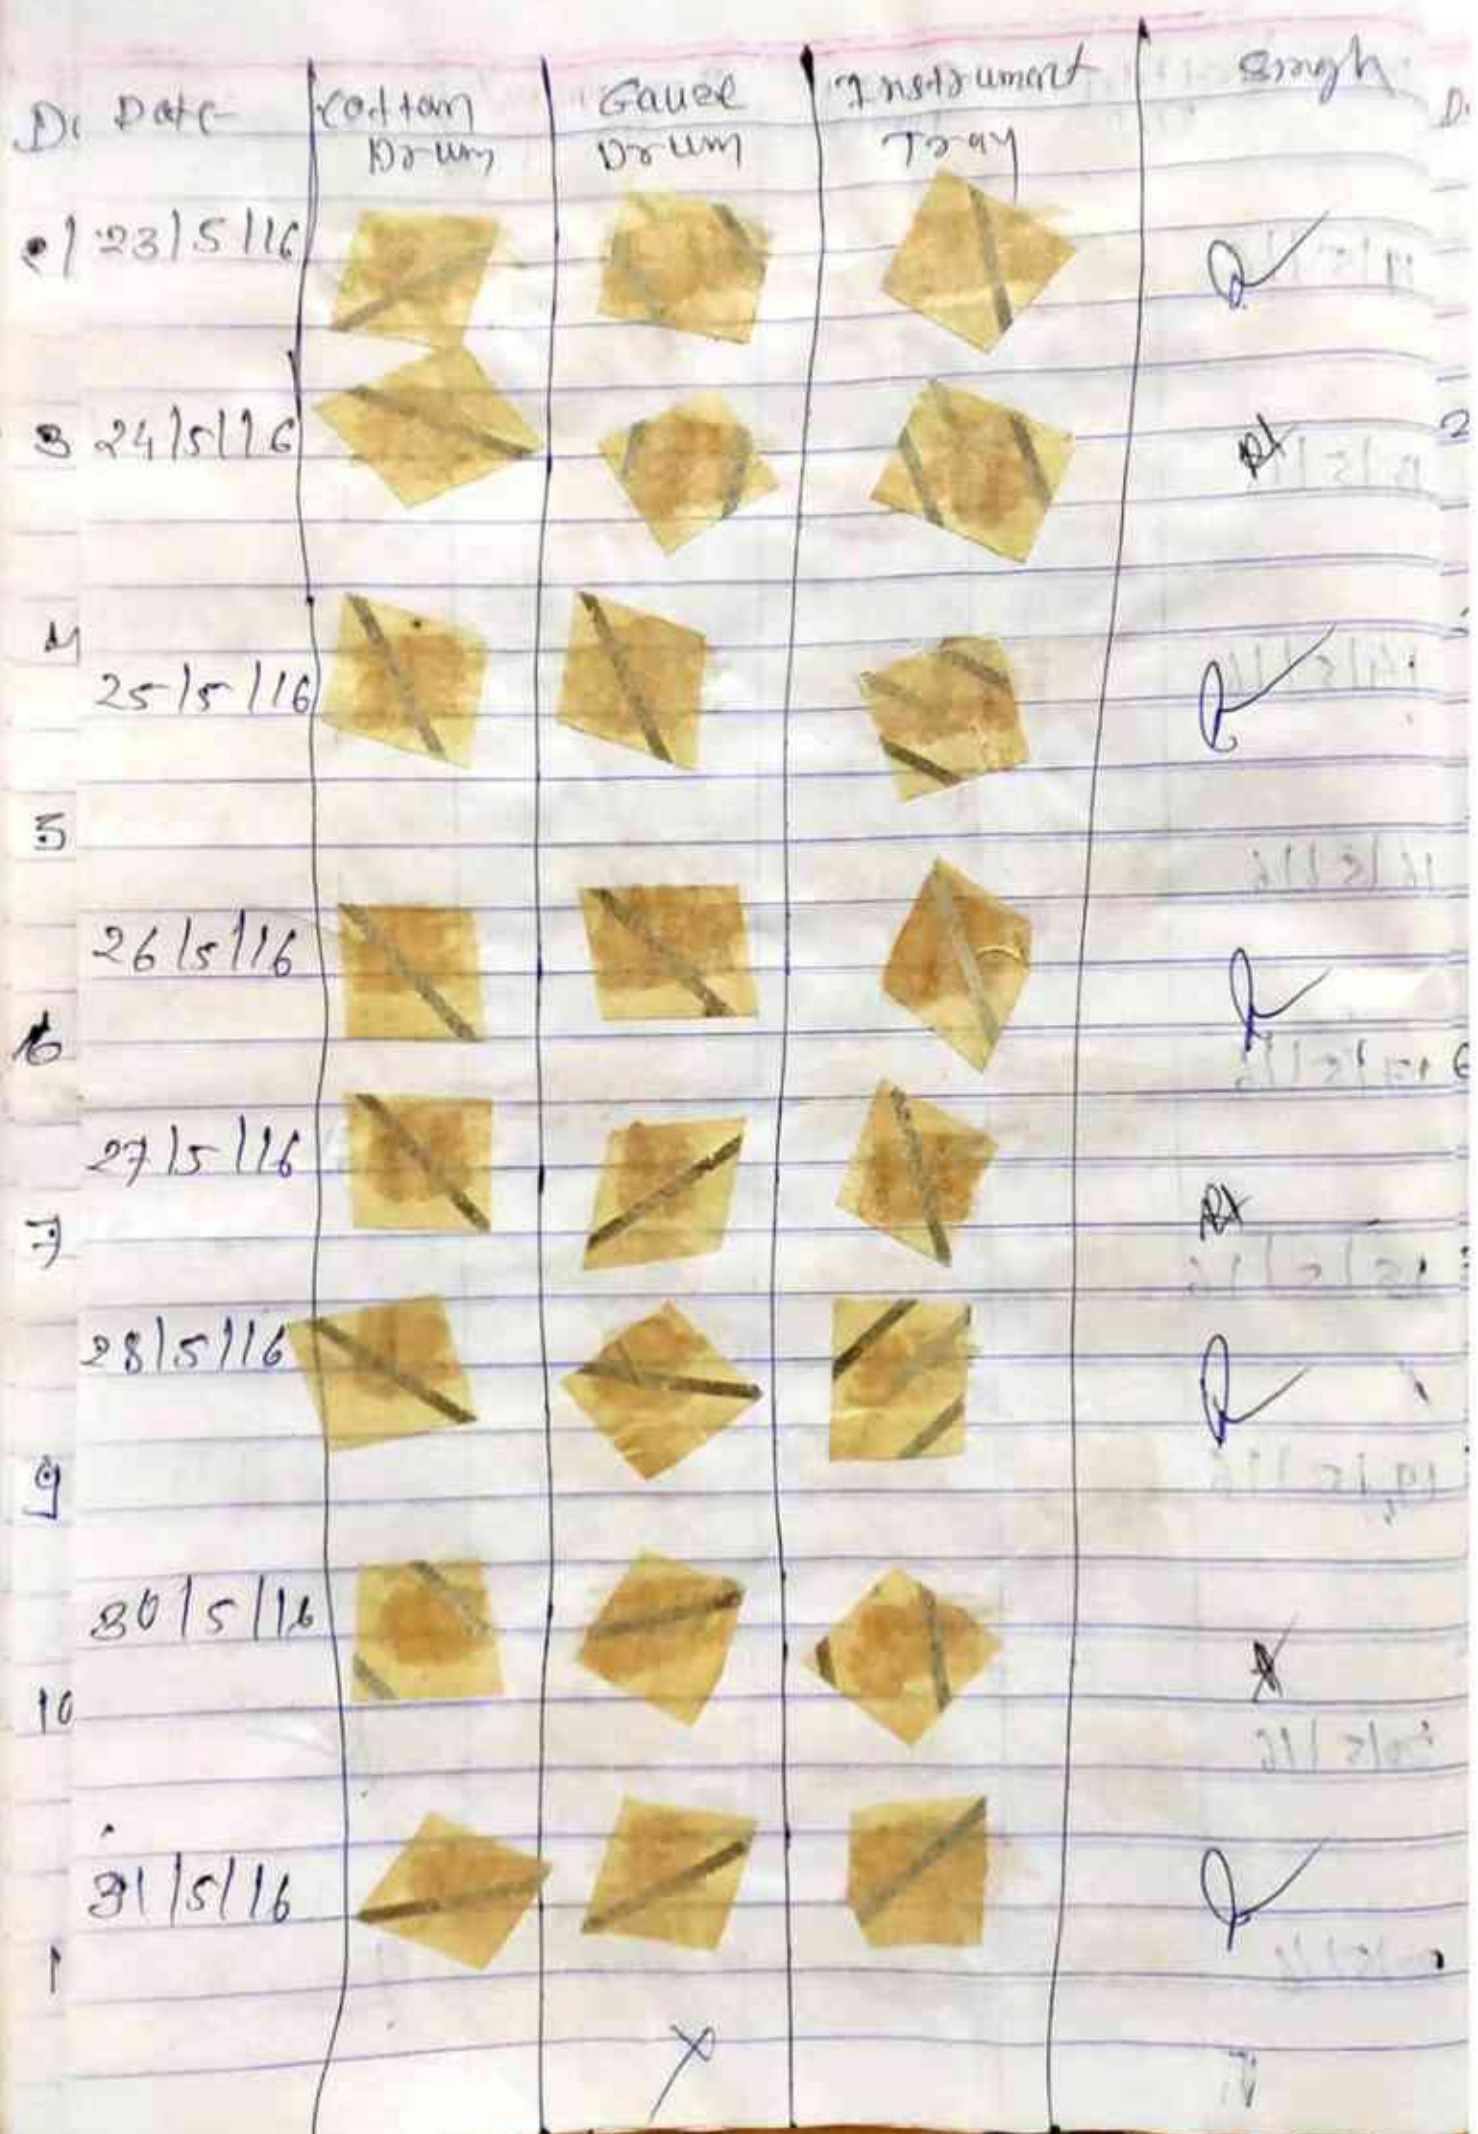 Date Cotton Drum Gauze Drum Instrument Tray
23/5/16
3 24/5/16
4
25/5/16
5
26/5/16
6
27/5/16
7
28/5/16
9
30/5/16
10
31/5/16
1